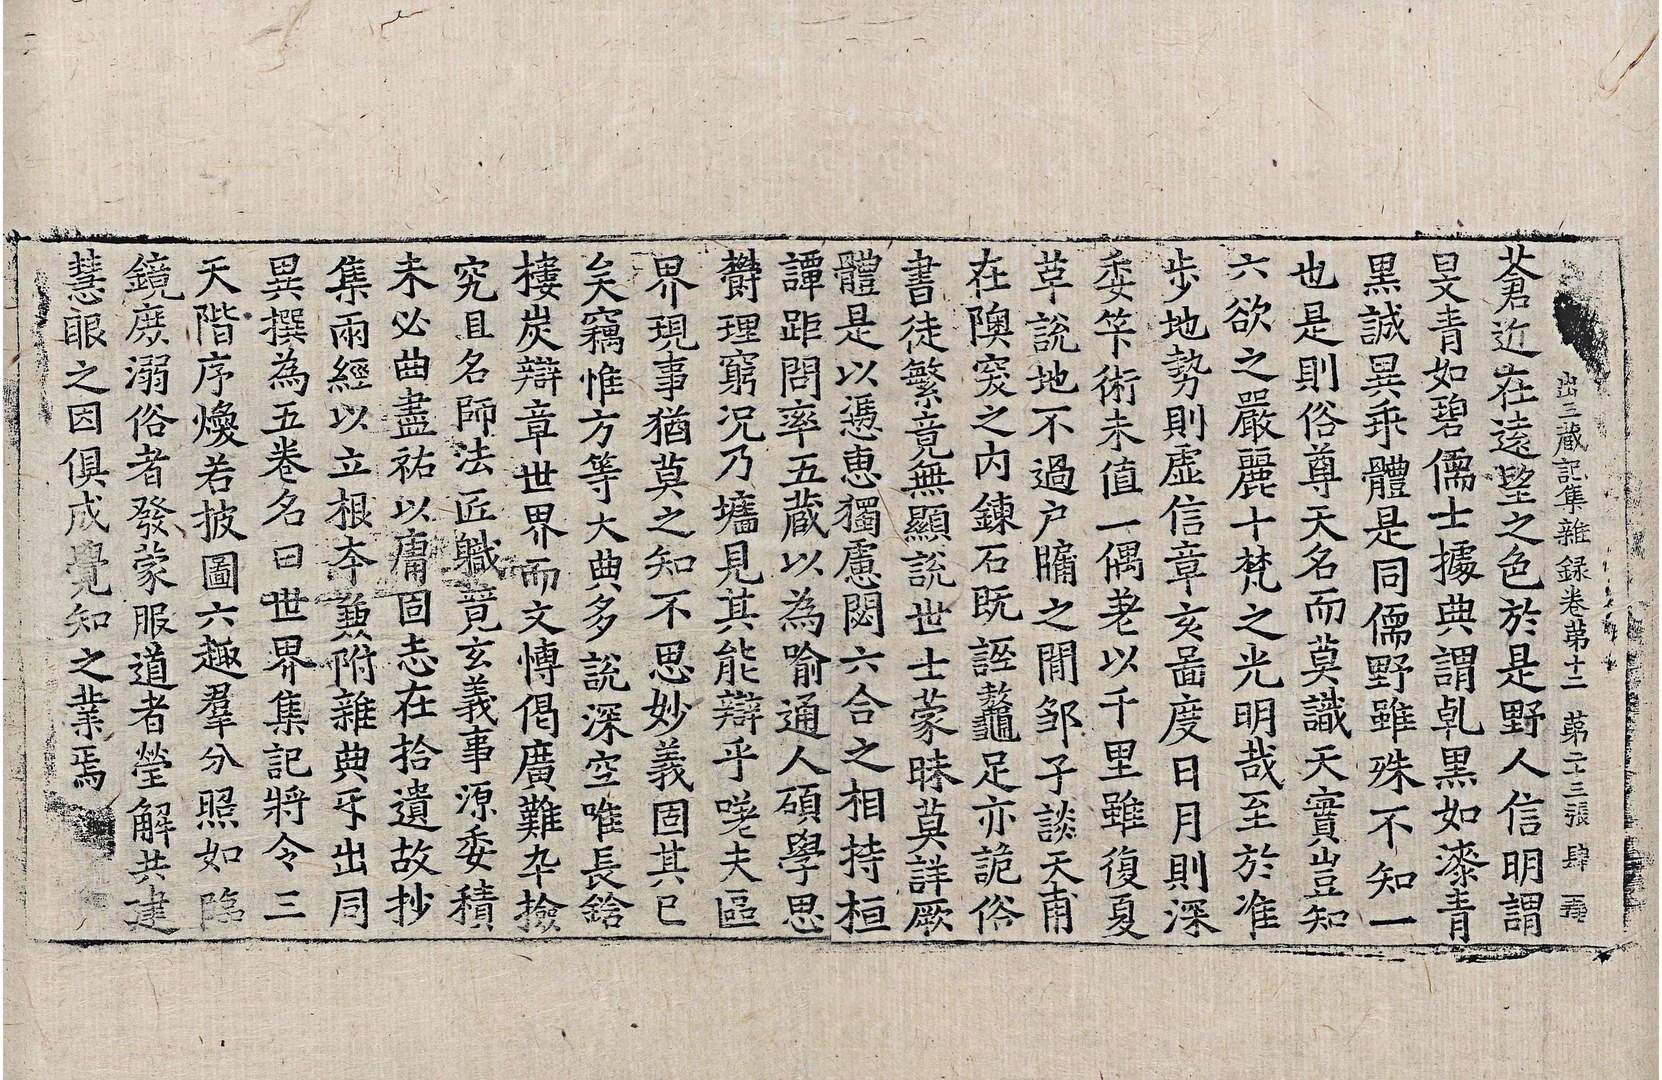 出三藏記集雜録卷第十二 第二十三張 肆
蒼近在遠望之色於是野人信明謂
旻青如碧儒士據典謂乹黒如漆青
黒誠異乖體是同儒野雖殊不知一
也是則俗尊天名而莫識天實豈知
六欲之嚴麗十梵之光明哉至於准
步地勢則虛信章亥啚度日月則深
委竿術未值一偶差以千里雖復夏
革說地不過户牖之閒邹子談天甫
在隩窔之内鍊石既誣鼇足亦詭俗
書徒繁竟無顯說世士蒙昧莫詳厥
體是以憑恵獨慮閟六合之相持桓
譚距問率五蔵以為喻通人碩學思
欝理窮況乃墻見其能辯乎嗟夫區
界現事猶莫之知不思妙義固其已
矣竊惟方等大典多說深空唯長鋡
樓炭辯章世界而文博偈廣難卒撿
究且名師法匠軄竟玄義事源委積
未必曲盡祐以庸固志在拾遺故抄
集兩經以立根夲兼附雜典㸦出同
異撰為五卷名曰世界集記將令三
天階序煥若披圖六趣羣分照如臨
鏡庶溺俗者發蒙服道者瑩解共建
慧眼之因俱成覺知之業焉